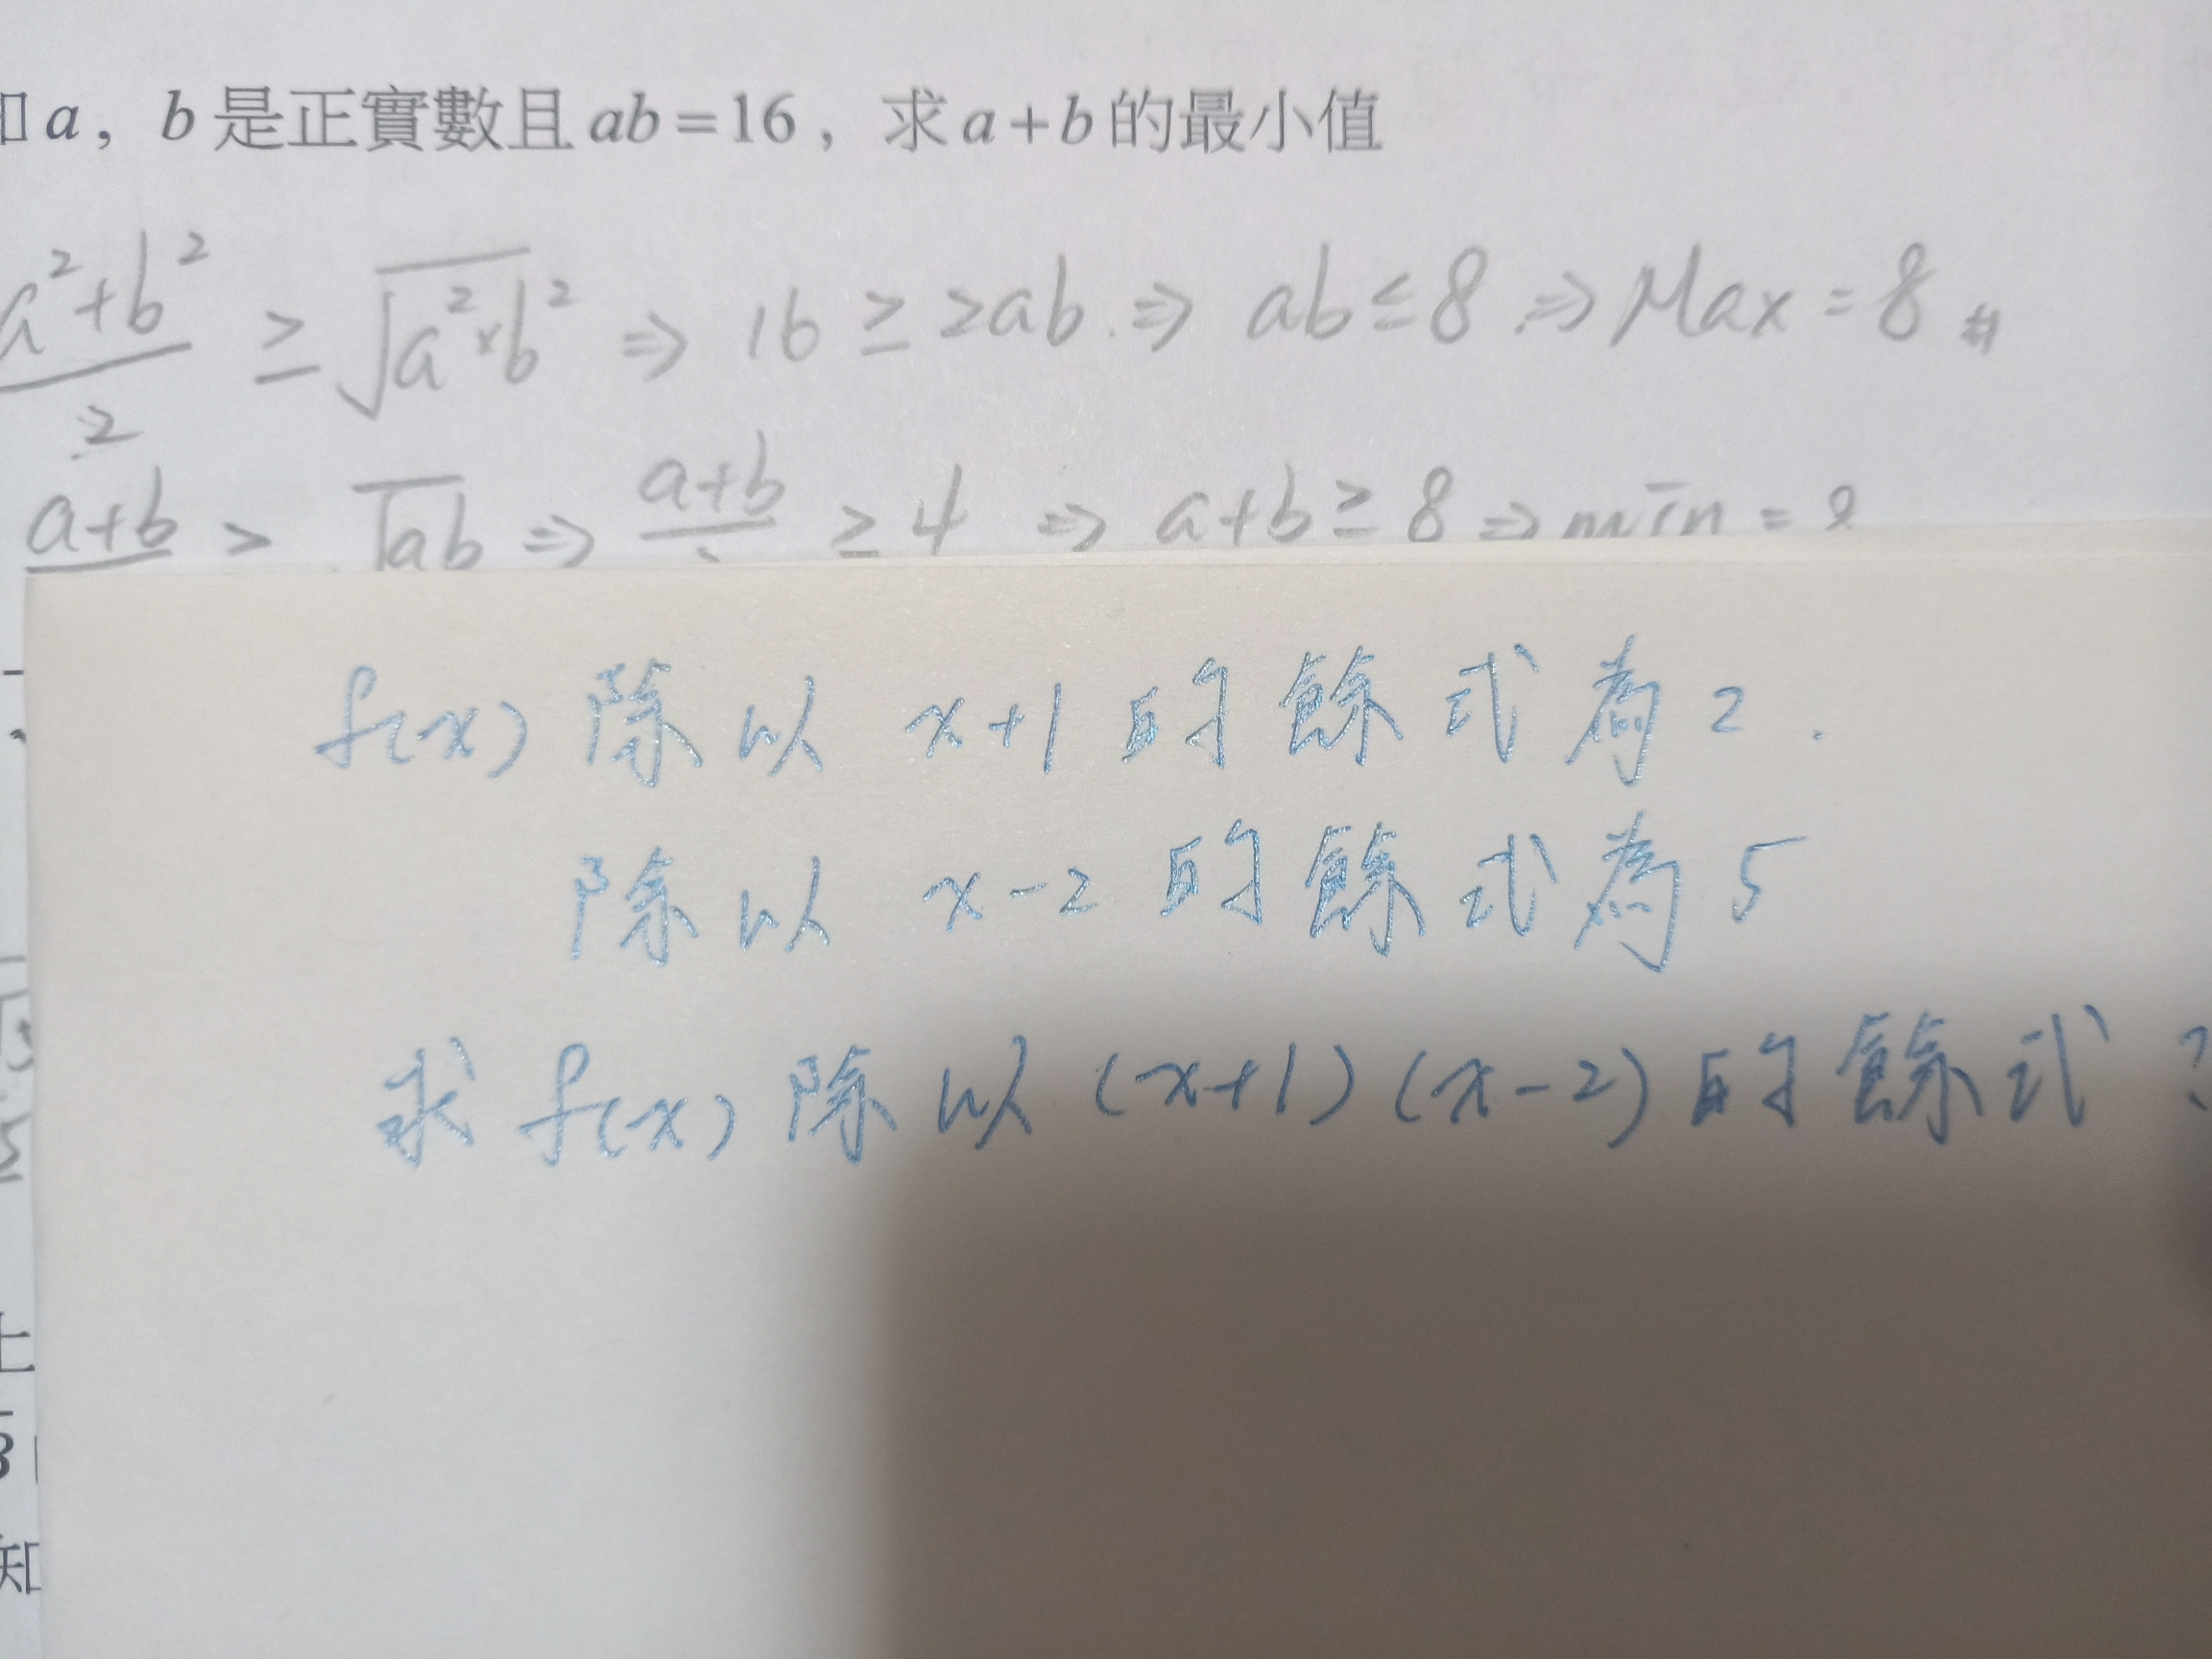 a，b是正實數且ab=16，求a+b的最小值
a²+b²/2 ≥ √a²×b² ⇒ 16 ≥ 2ab ⇒ ab ≤ 8 ⇒ Max = 8 #
a+b > √ab ⇒ a+b ≥ 4 ⇒ a+b ≥ 8 ⇒ min = 8
f(x) 除以 x+1 的餘式為 2.
除以 x-2 的餘式為 5
求 f(x) 除以 (x+1)(x-2) 的餘式?